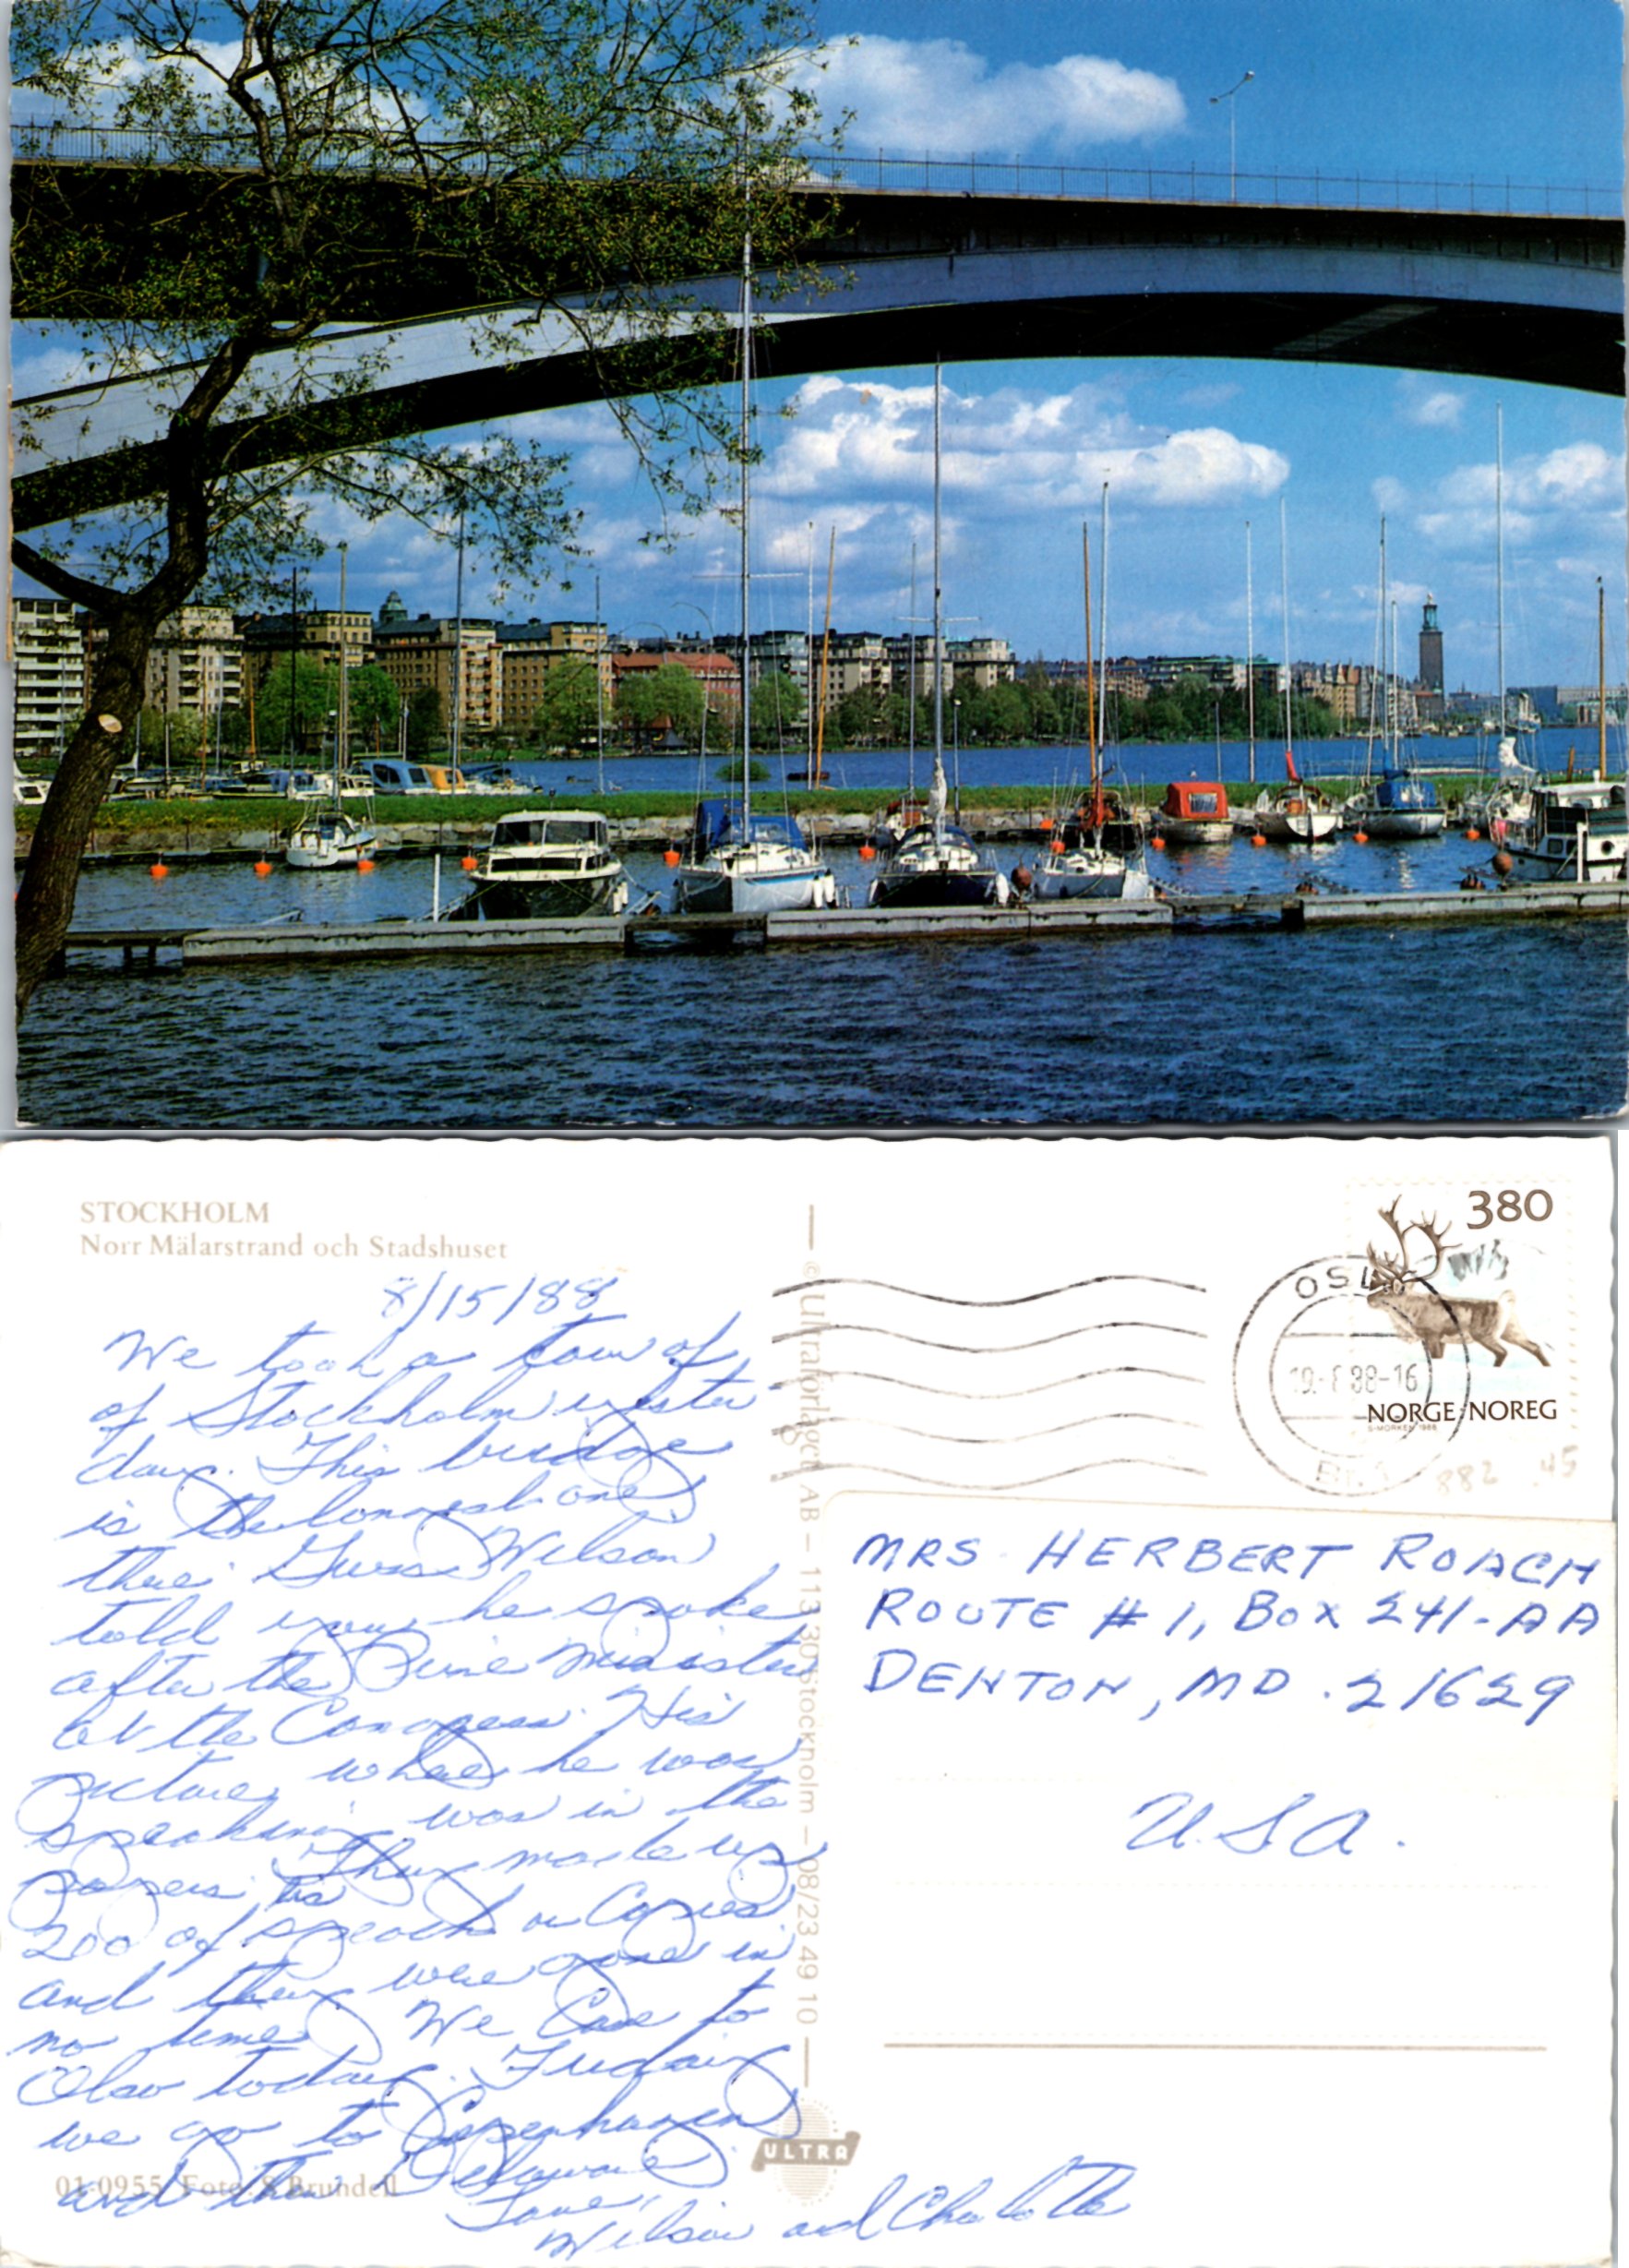 STOCKHOLM
Norr Mälarstrand och Stadshuset
8/15/88
We took a tour of
of Stockholm yester
day. This bridge
is the longest one
there. Guess Wilson
told you he spoke
after the Prime Minister
at the Congress. His
picture where he was
speaking was in the
papers. They made up
200 of his speech in Copies
and they were gone in
no time. We came to
Oslo today. Friday
we go to Copenhagen
and then Delaware.
Love,
Wilson and Charlotte
01-0955 Foto: S Brundell
© Ultraförlaget AB – 113 30 Stockholm – 08/23 49 10
ULTRA
380
NORGE NOREG
S·MORKEN 1988
OSLO
19.-8 88-16
Br.1
882 45
MRS HERBERT ROACH
ROUTE #1, BOX 241-AA
DENTON, MD. 21629
U.S.A.